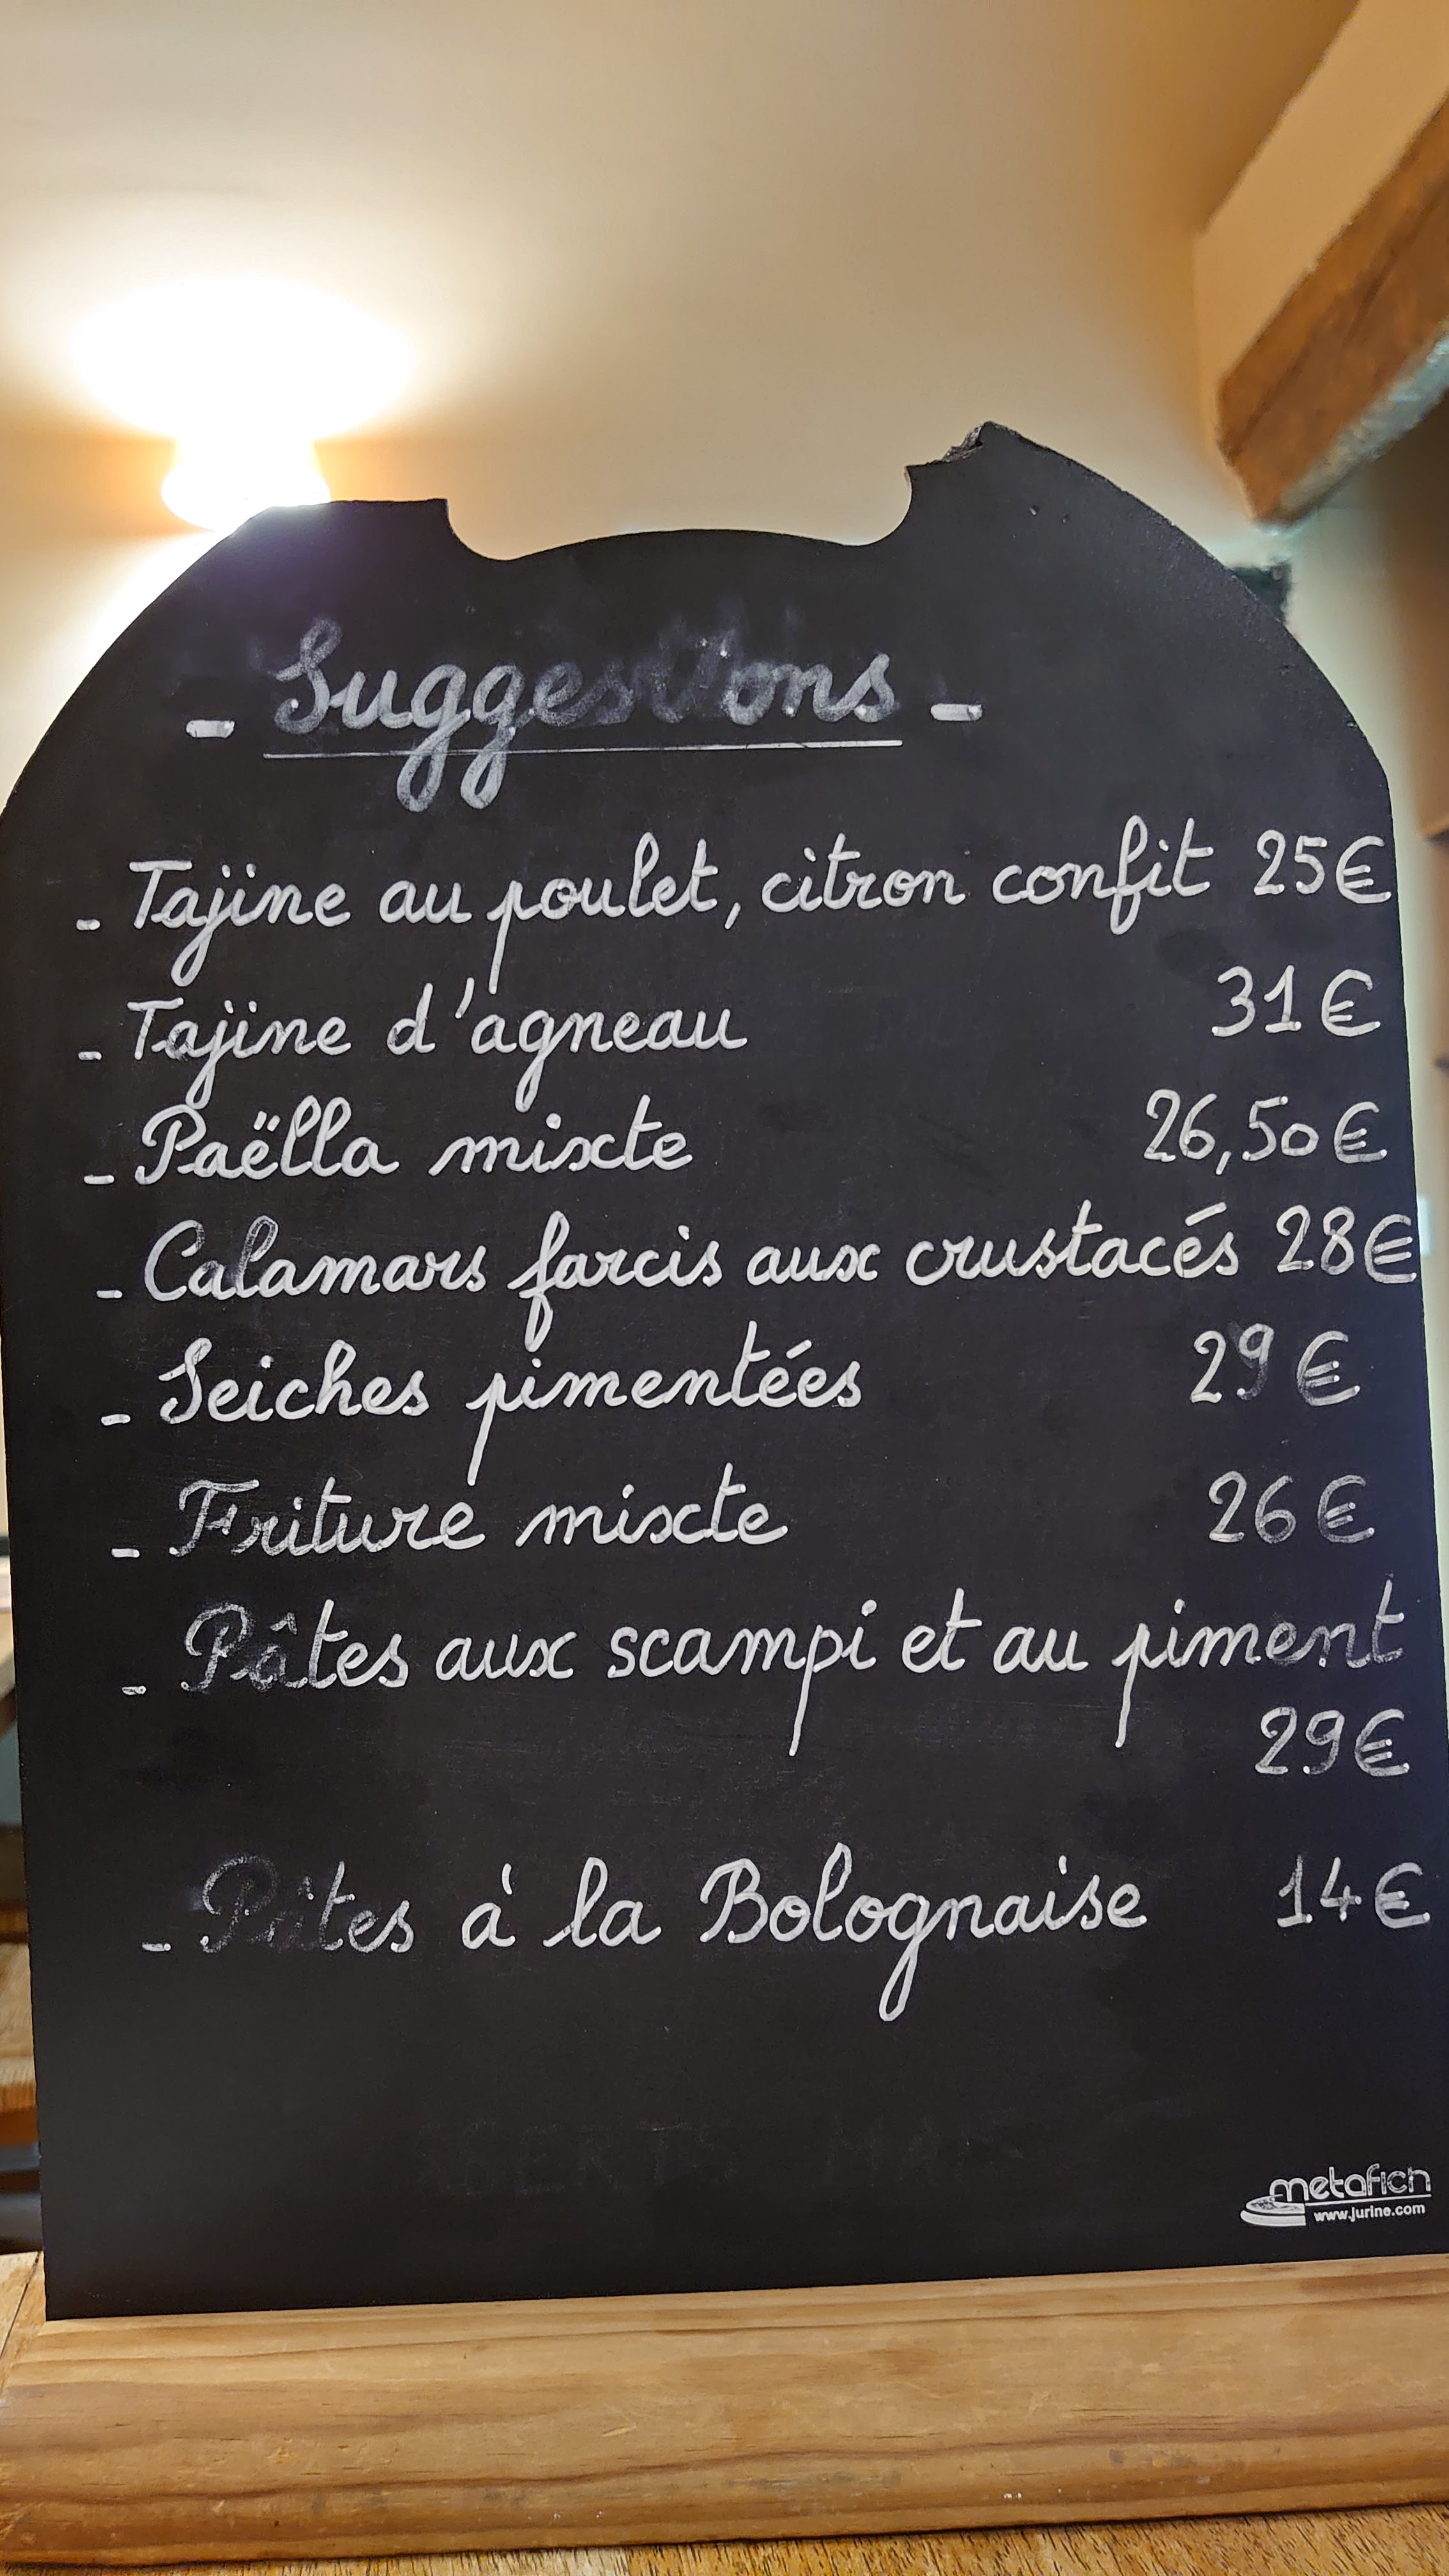 - Suggestions -
- Tajine au poulet, citron confit 25€
- Tajine d'agneau 31€
- Paëlla mixte 26,50€
- Calamars farcis aux crustacés 28€
- Seiches pimentées 29€
- Friture mixte 26€
- Pâtes aux scampi et au piment
29€
- Pâtes à la Bolognaise 14€
metafich
www.jurine.com